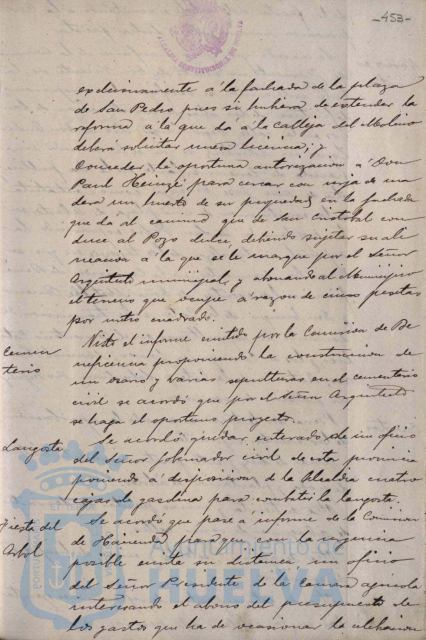 -453-
exclusivamente a la fachada de la plaza
de San Pedro pues si hubiera de extender la
reforma a la que da a la calleja del Molino
deberá solicitar nueva licencia; y
Conceder la oportuna autorizacion a Don
Paul Heinze para cercar con verja de ma
dera un huerto de su propiedad en la fachada
que da al camino que de San Cristobal con
duce al Pozo dulce, debiendo sujetar su ali
neacion a la que se le marque por el Señor
Arquitecto municipal, y abonando al Municipio
el terreno que ocupe a razon de cinco pesetas
por metro cuadrado.
Cemen
terio
Visto el informe emitido por la Comision de Be
neficencia proponiendo la construccion de
un osario y varias sepulturas en el cementerio
civil se acordó que por el Señor Arquitecto
se haga el oportuno proyecto.
Langosta
Se acordó quedar enterado de un oficio
del Señor Gobernador civil de esta provincia
poniendo a disposicion de la Alcaldia cuatro
cajas de gasolina para combatir la langosta.
Fiesta del
Arbol
Se acordó que pase a informe de la Comision
de Hacienda para que con la urgencia
posible emita su dictamen un oficio
del Señor Presidente de la Camara agricola
interesando el abono del presupuesto de
los gastos que ha de ocasionar la celebracion
Ayuntamiento de
HUELVA